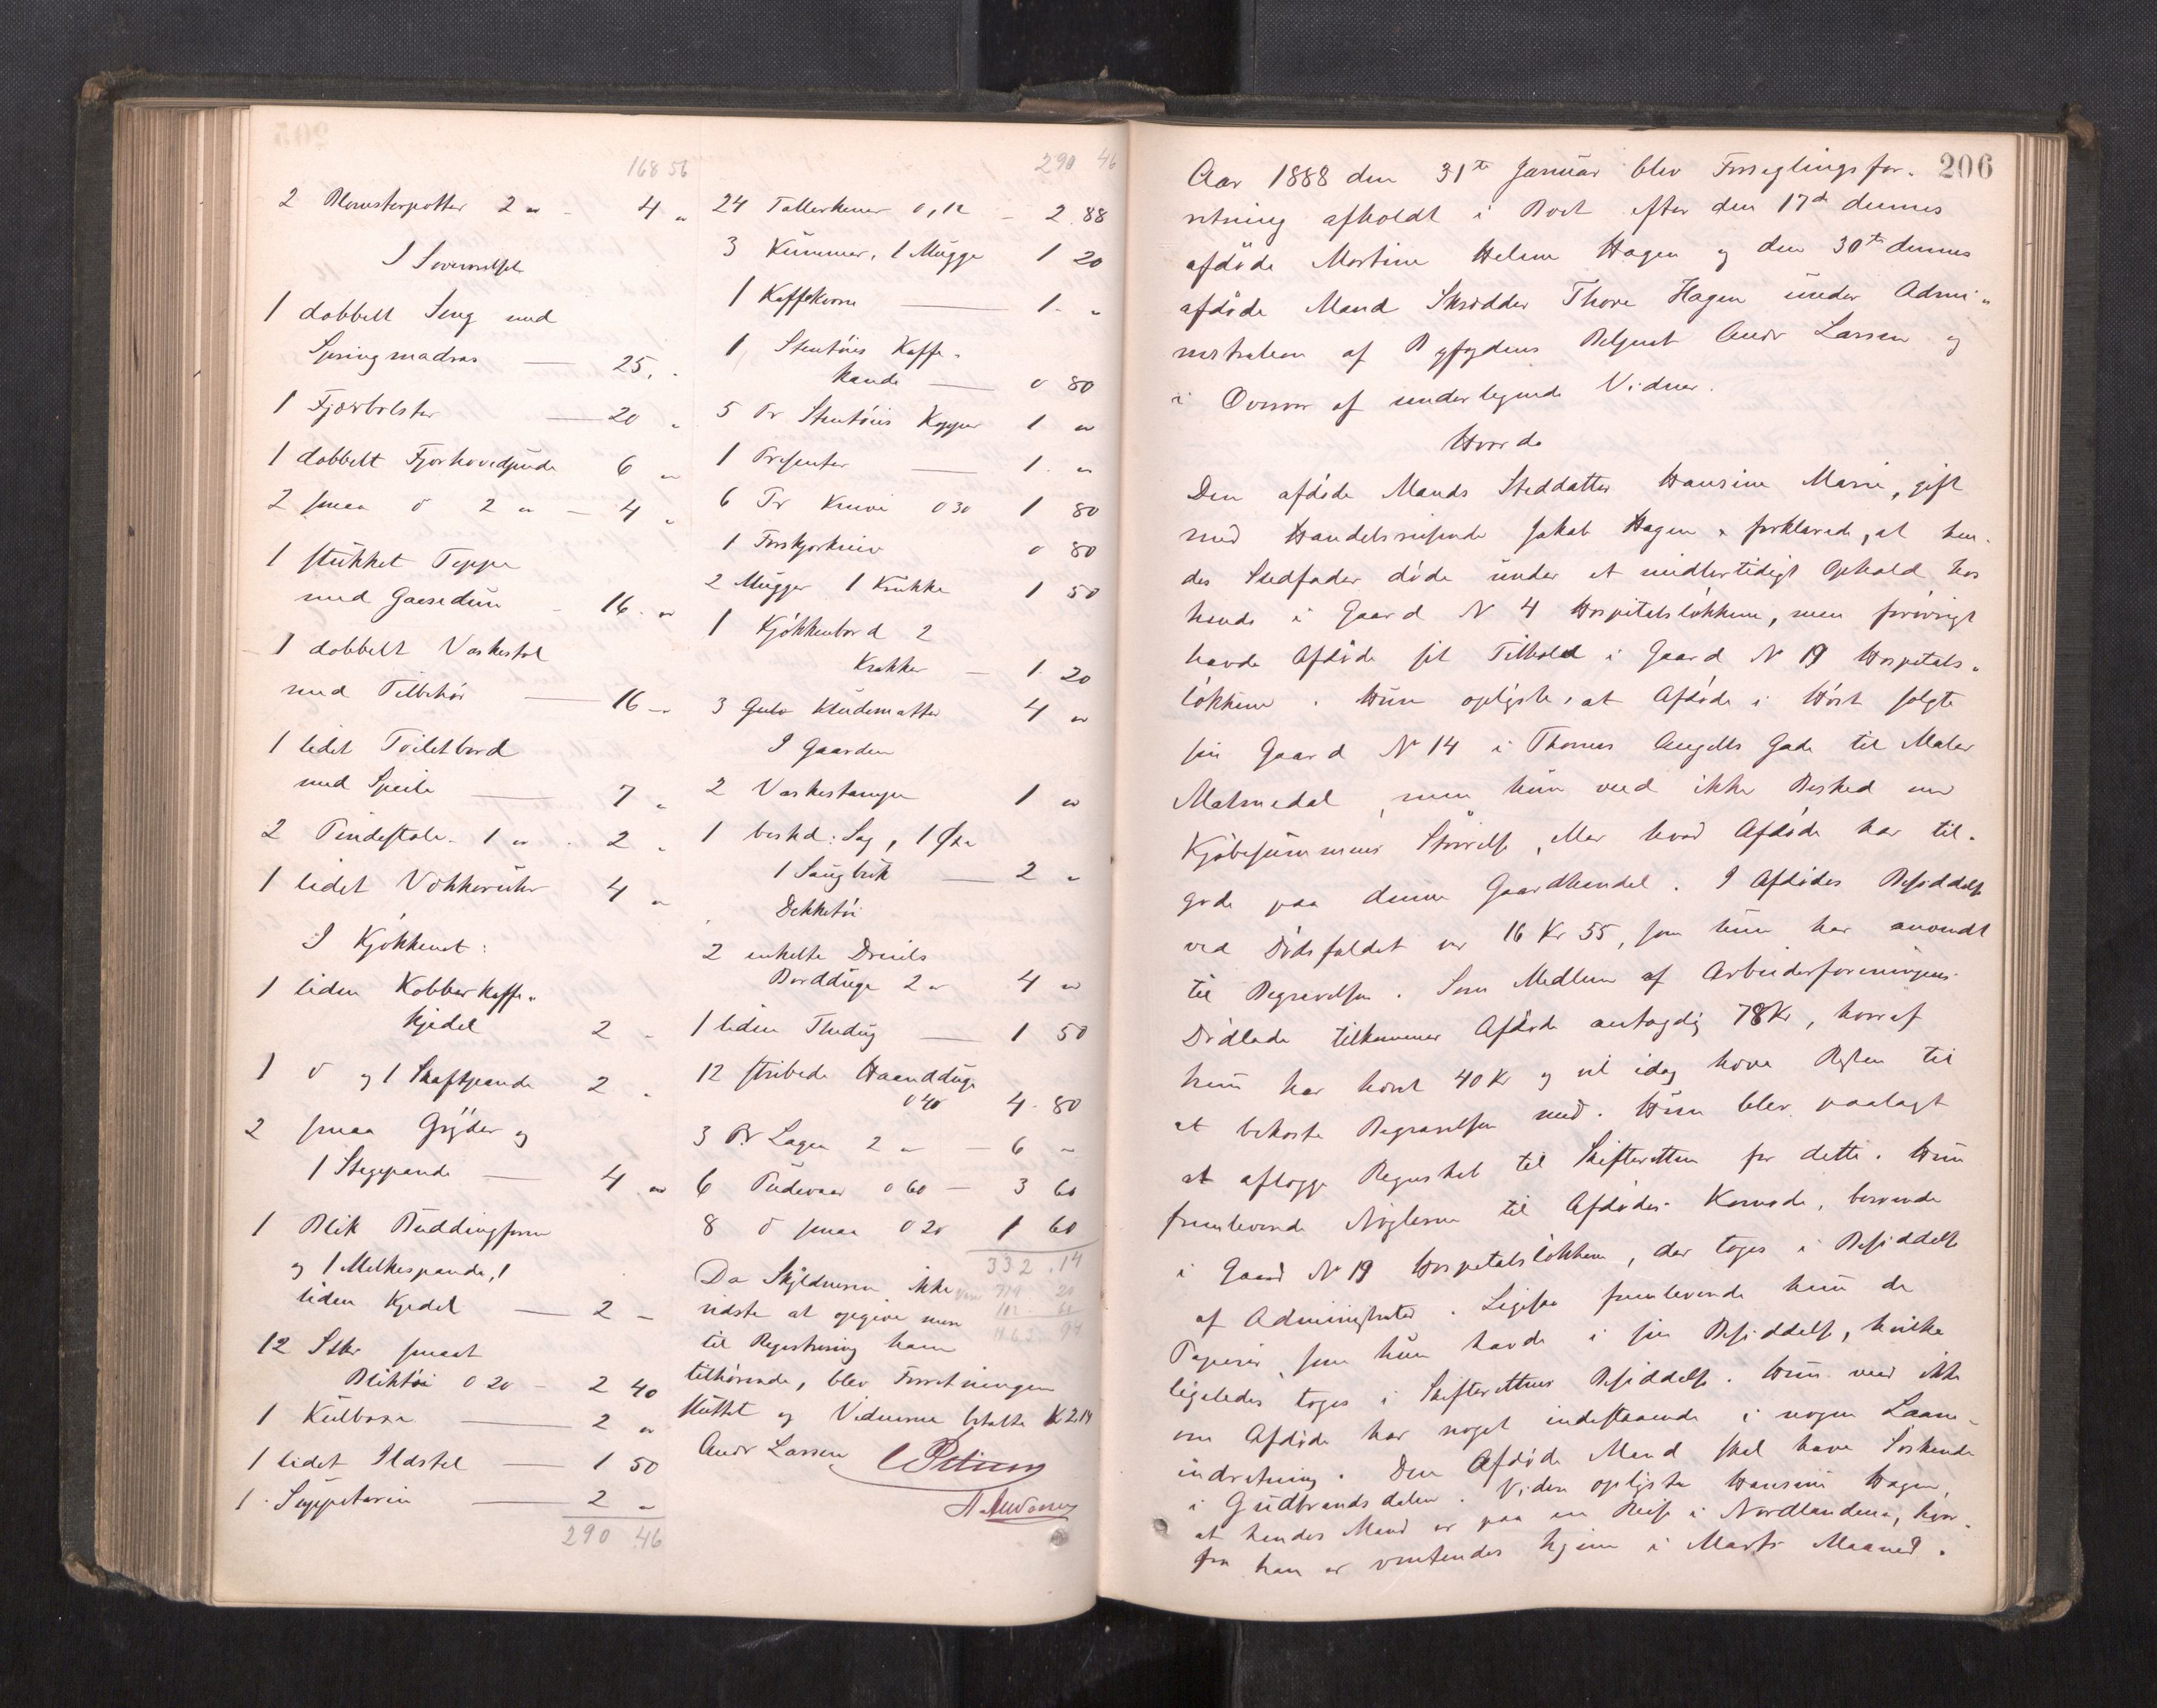 168 56
2 Blomsterpotter 2 " - 4 "
I Soverværelset
1 dobbelt Seng med
Springmadras — 25. "
1 Fjærbolster — 20 "
1 dobbelt Fjærhovedpude 6 "
2 smaa d 2 " - 4 "
1 stukket Teppe
med Gaasedun - 16 "
1 dobbelt Vaskestol
med Tilbehör — 16 "
1 lidet Toiletbord
med Speile — 7 "
2 Pindestole 1 " - 2 "
1 lidet Vækkeruhr 4 "
I Kjökkenet:
1 liden Kobberkaffe-
kjedel 2 "
1 d og 1 Skaftpande 2 "
2 smaa Gryder og
1 Stegepande — 4 "
1 Blik Buddingform
og 1 Melkespande, 1
liden Kjedel — 2 "
12 Stkr smaat
Bliktöi 0 20 - 2 40
1 Kulboxe — 2 "
1 lidet Ildstel — 1 50
1 Suppeterin — 2 "
290 46
290 46
24 Tallerkener 0,12 - 2.88
3 Kummer, 1 Mugge 1 20
1 Kaffekvern — 1. "
1 Stentöies Kaffe-
kande — 0 80
5 Pr Stentöies Kopper 1 "
1 Presenter — 1. "
6 Pr Knive 0 30 1 80
1 Forskjærkniv 0 80
2 Mugger 1 Krukke 1 50
1 Kjökkenbord 2
Krakker — 1. 20
3 Gulv Kludematter 4 "
I Gaarden
2 Vaskestamper 1 "
1 beskd: Sag, 1 Öxe
1 Saugbuk — 2 "
Dekketöi
2 enkelte Dreiels
Bordduge 2 " 4 "
1 liden Thedug — 1 50
12 stribede Haandduge
0 40 4. 80
3 Pr Lagen 2 " - 6 "
6 Pudevaar 0 60 — 3 60
8 d smaa 0 20 1 60
332.14
Da Skyldneren ikke
vidste at opgive mere
til Registrering ham
tilhörende, blev Forretningen
sluttet og Vidnerne betalte K 2.14
Andr Larsen
206
Aar 1888 den 31te Januar blev Forseglingsfor-
retning afholdt i Boet efter den 17de dennes
afdöde Martine Helene Hagen og den 30te dennes
afdöde Mand Skrædder Thore Hagen under Admi-
nistration af Byfogdens Betjent Andr Larsen og
i Overvær af underlegnede Vidner.
Hvorda
Den afdöde Mands Steddatter Hansine Marie, gift
med Handelsreisende Jakob Hagen, forklarede, at hen-
des Stedfader döde under et midlertidigt Ophold hos
hende i Gaard N 4 Hospitalslökken, men forövrigt
havde Afdöde sit Tilhold i Gaard N 19 Hospitals-
lökken. Hun oplyste, at Afdöde i Höst solgte
sin Gaard No 14 i Thomas Angells Gade til Maler
Malmedal, men hun veed ikke Besked om
Kjöbesummens Störrelse, eller hvad Afdöde har til-
gode paa denne Gaardhandel. I Afdödes Besiddelse
ved Dödsfaldet var 16 Kr 55, som hun har anvendt
til Begravelsen. Som Medlem af Arbeiderforeningens
Dödlade tilkommer Afdöde antagelig 78 Kr, hvoraf
hun har hævet 40 Kr og vil idag hæve Resten til
at bekoste Begravelsen med. Hun blev paalagt
at aflægge Regnskab til Skifteretten for dette. Hun
fremleverede Nöglerne til Afdödes Komode, beroende
i Gaard No 19 Hospitalslökken, der toges i Besiddelse
af Administrator. Ligesaa fremleverede hun de
Papirer, som hun havde i sin Besiddelse, hvilke
ligeledes toges i Skifterettens Besiddelse. Hun veed ikke
om Afdöde har noget indestaaende i nogen Laane-
indretning. Den Afdöde Mand skal have Söskende
i Gudbrandsdalen. Videre oplyste Hansine Hagen,
at hendes Mand er paa en Reise i Nordlandene, hvor-
fra han er ventendes hjem i Marts Maaned.